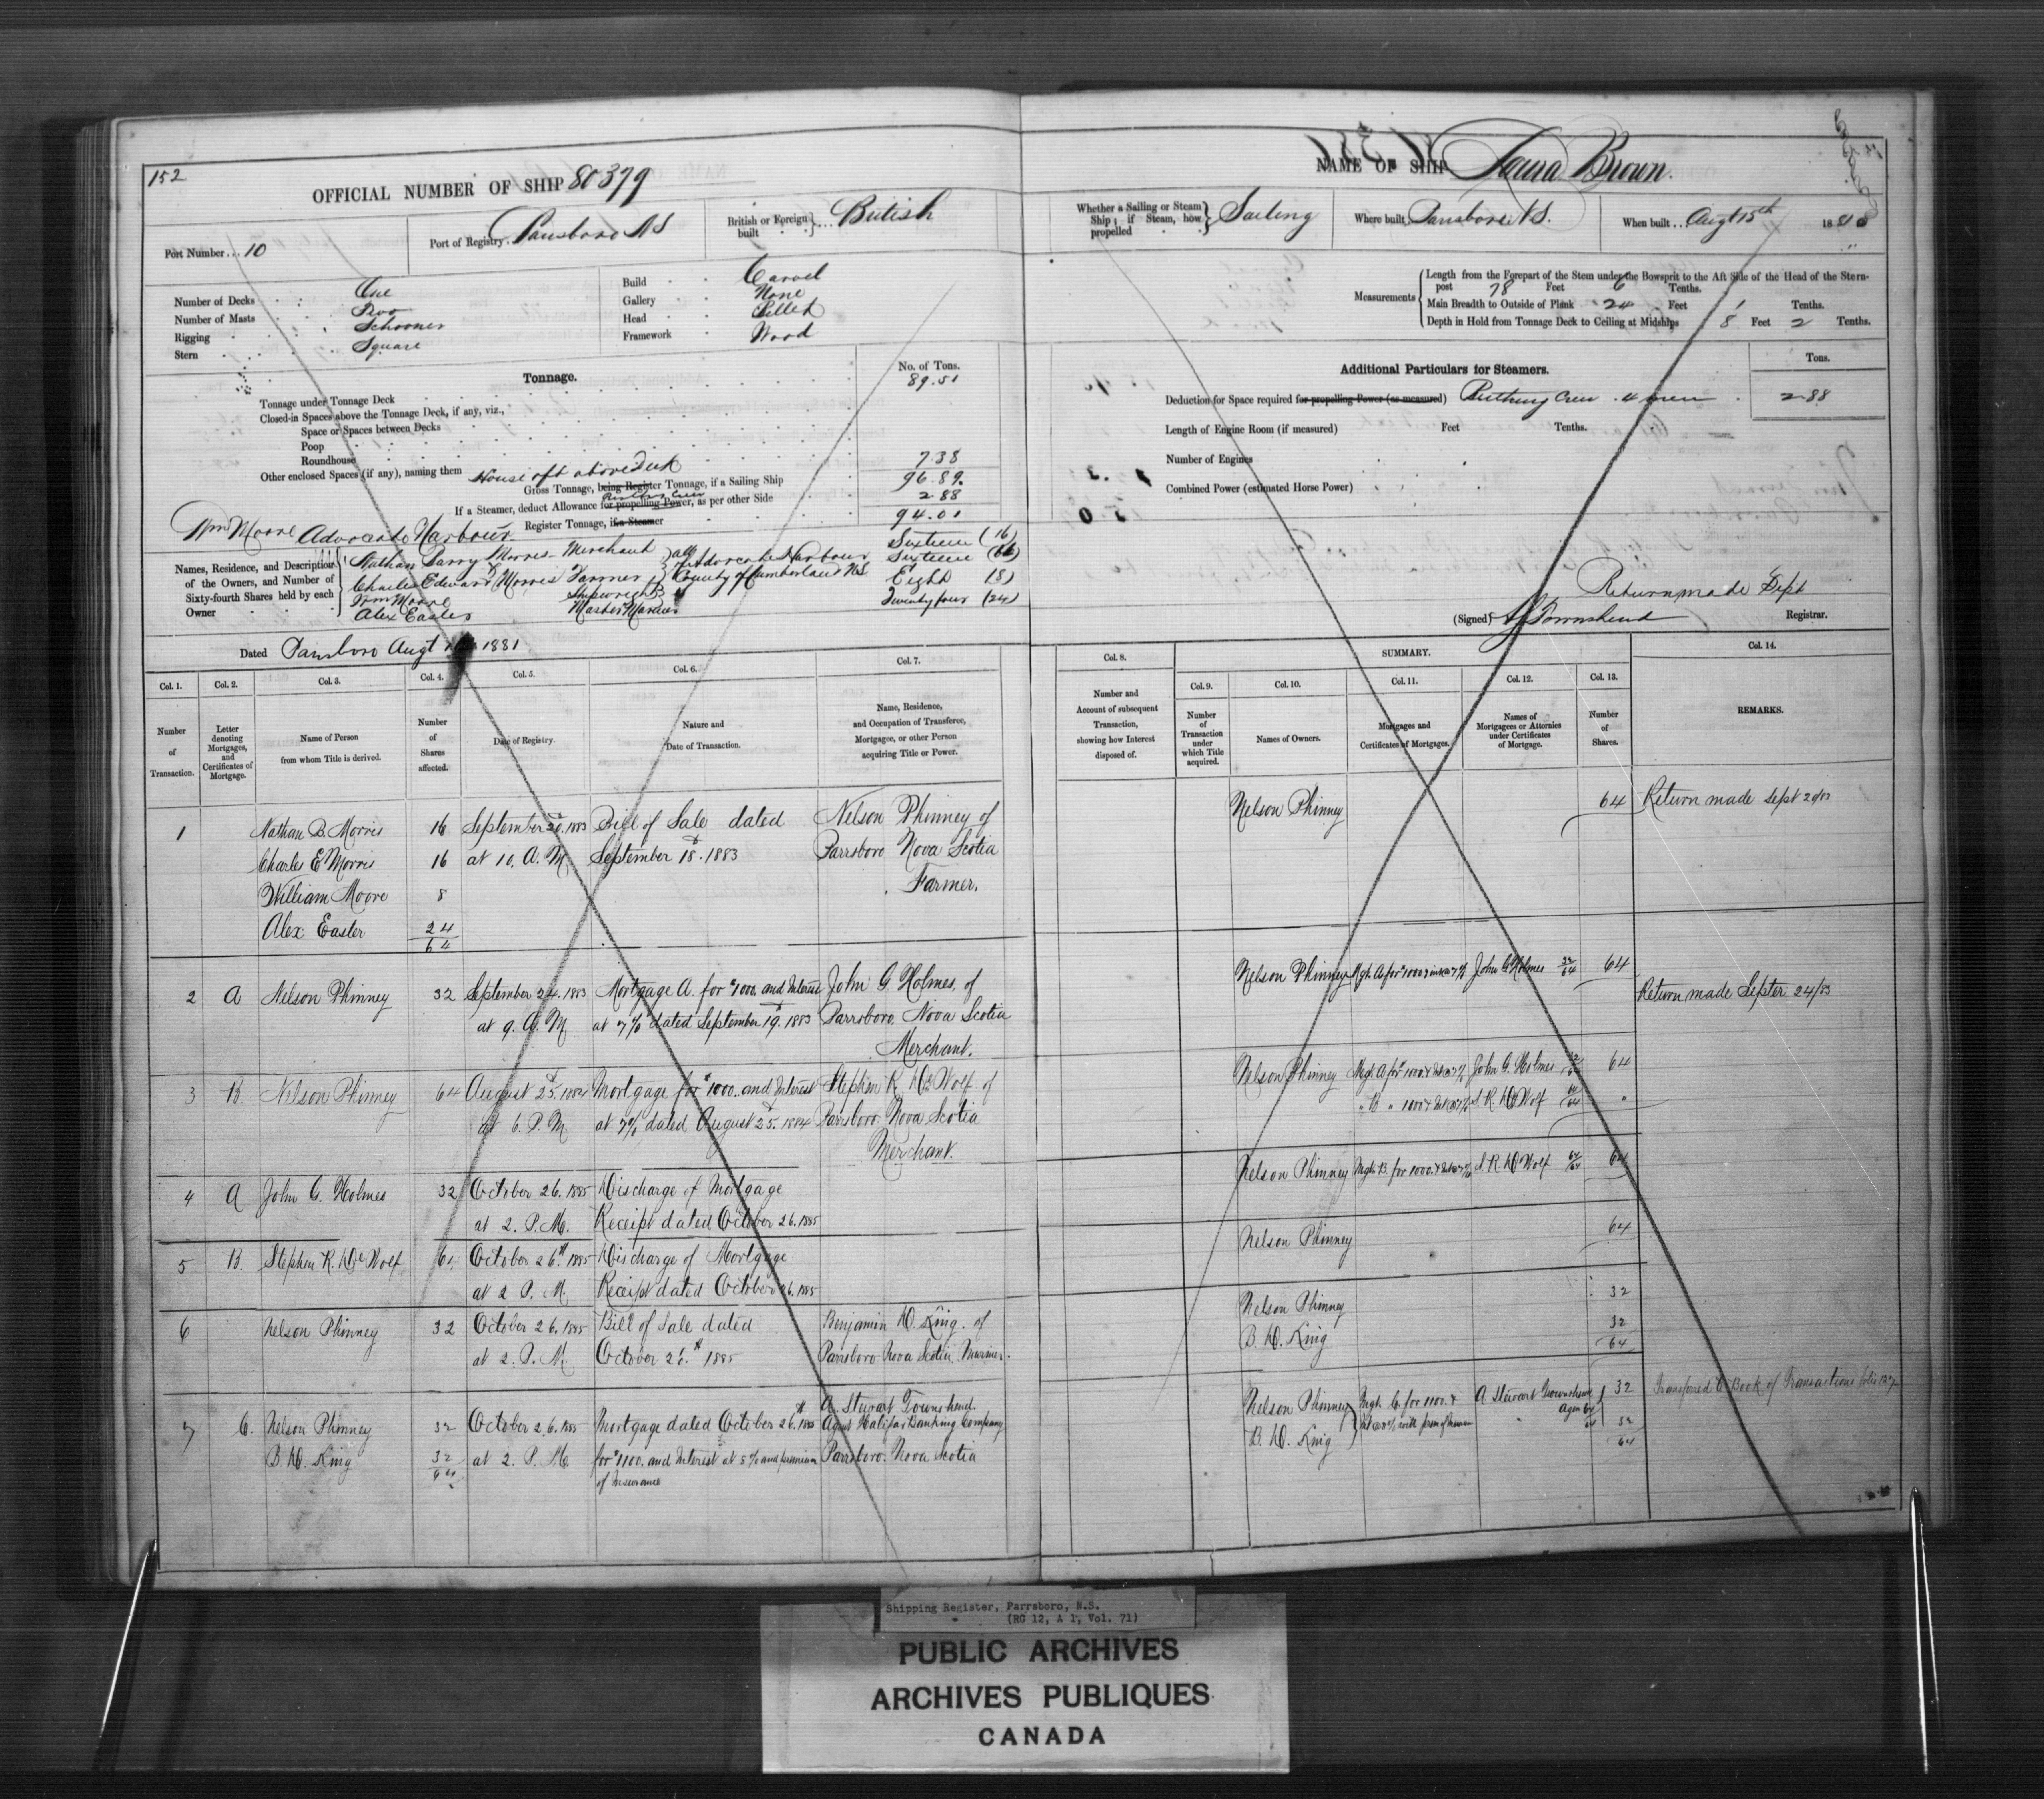 152
OFFICIAL NUMBER OF SHIP 80379
Port Number... 10
Port of Registry. Parrsboro NS
British or Foreign built } ... British
Number of Decks One
Number of Masts Two
Rigging Schooner
Stern Square
Build Carvel
Gallery None
Head Billet
Framework Wood
Tonnage.
No. of Tons.
Tonnage under Tonnage Deck 89.51
Closed-in Spaces above the Tonnage Deck, if any, viz.,
Space or Spaces between Decks
Poop
Roundhouse
Other enclosed Spaces (if any), naming them House aft above Deck 7.38
Gross Tonnage, being Register Tonnage, if a Sailing Ship 96.89
If a Steamer, deduct Allowance for propelling Power, as per other Side 2.88
Register Tonnage, if a Steamer 94.01
Wm Moore Advocate Harbour
Names, Residence, and Description of the Owners, and Number of Sixty-fourth Shares held by each Owner
Nathan Barry Morris Merchant Sixteen (16)
Charles Edward Morris Farmer Sixteen (16)
Wm Moore Shipwright Eight (8)
Alex Easler Master Mariner Twenty four (24)
all of Advocate Harbour
County of Cumberland N.S.
Dated Parrsboro Augt 1881
NAME OF SHIP Laura Brown.
Whether a Sailing or Steam Ship; if Steam, how propelled } Sailing
Where built Parrsboro N.S.
When built.. Augt 15th 188
Measurements
Length from the Forepart of the Stem under the Bowsprit to the Aft Side of the Head of the Stern-
post 78 Feet 6 Tenths.
Main Breadth to Outside of Plank 24 Feet 1 Tenths.
Depth in Hold from Tonnage Deck to Ceiling at Midships 8 Feet 2 Tenths.
Additional Particulars for Steamers.
Tons.
Deduction for Space required for propelling Power (as measured) Berthing Crew. 4 men 2.88
Length of Engine Room (if measured) Feet Tenths.
Number of Engines
Combined Power (estimated Horse Power)
Return made Sept
(Signed) Townshend Registrar.
Col. 1. Col. 2. Col. 3. Col. 4. Col. 5. Col. 6. Col. 7.
Number of Transaction.
Letter denoting Mortgages, and Certificates of Mortgage.
Name of Person from whom Title is derived.
Number of Shares affected.
Date of Registry.
Nature and Date of Transaction.
Name, Residence, and Occupation of Transferee, Mortgagee, or other Person acquiring Title or Power.
Col. 8. SUMMARY. Col. 14.
Col. 9. Col. 10. Col. 11. Col. 12. Col. 13.
Number and Account of subsequent Transaction, showing how Interest disposed of.
Number of Transaction under which Title acquired.
Names of Owners.
Mortgages and Certificates of Mortgages.
Names of Mortgagees or Attornies under Certificates of Mortgage.
Number of Shares.
REMARKS.
1 Nathan B. Morris 16 September 20. 1883 Bill of Sale dated Nelson Phinney of
Charles E Morris 16 at 10. A.M. September 18. 1883 Parrsboro Nova Scotia
William Moore 8 Farmer.
Alex Easler 24
64
2 A Nelson Phinney 32 September 24. 1883 Mortgage A. for $1000. and Interest John G. Holmes. of
at 9. A.M. at 7% dated September 19. 1883 Parrsboro. Nova Scotia
Merchant.
3 B. Nelson Phinney 64 August 25. 1884 Mortgage for $1000. and Interest Stephen R. De Wolf of
at 6. P.M. at 7% dated August 25. 1884 Parrsboro. Nova Scotia
Merchant.
4 A John G. Holmes 32 October 26. 1885 Discharge of Mortgage
at 2. P.M. Receipt dated October 26. 1885
5 B. Stephen R. De Wolf 64 October 26th. 1885 Discharge of Mortgage
at 2 P.M. Receipt dated October 26. 1885
6 Nelson Phinney 32 October 26. 1885 Bill of Sale dated Benjamin D. King. of
at 2. P.M. October 26.th 1885 Parrsboro. Nova Scotia. Mariner.
7 C. Nelson Phinney 32 October 26. 1885 Mortgage dated October 26th 1885 A. Stewart Townshend.
B. D. King 32 at 2. P.M. for $1100. and Interest at 8% and premium Agent Halifax Banking Company
64 of Insurance Parrsboro. Nova Scotia
Nelson Phinney 64 Return made Sept 20/83
Nelson Phinney Mge. A for $1000 & int @ 7% John G Holmes 32/64 64
Return made Septer 24/83
Nelson Phinney Mge A for $1000 & Int @ 7% John G. Holmes 32/64 64
" B " 1000 & Int @ 7% S. R. De Wolf 64/64 "
Nelson Phinney Mge. B. for 1000. & Int @ 7% S. R. De Wolf 64/64 64
Nelson Phinney 64
Nelson Phinney 32
B. D. King 32
64
Nelson Phinney Mge. C. for 1100. & A Stewart Townshend 32 Transferred to Book of Transactions folio 127
B. D. King Int @ 8% with prem of Insuran Agen 64/64 32
64
Shipping Register, Parrsboro, N.S.
(RG 12, A 1, Vol. 71)
PUBLIC ARCHIVES
ARCHIVES PUBLIQUES
CANADA